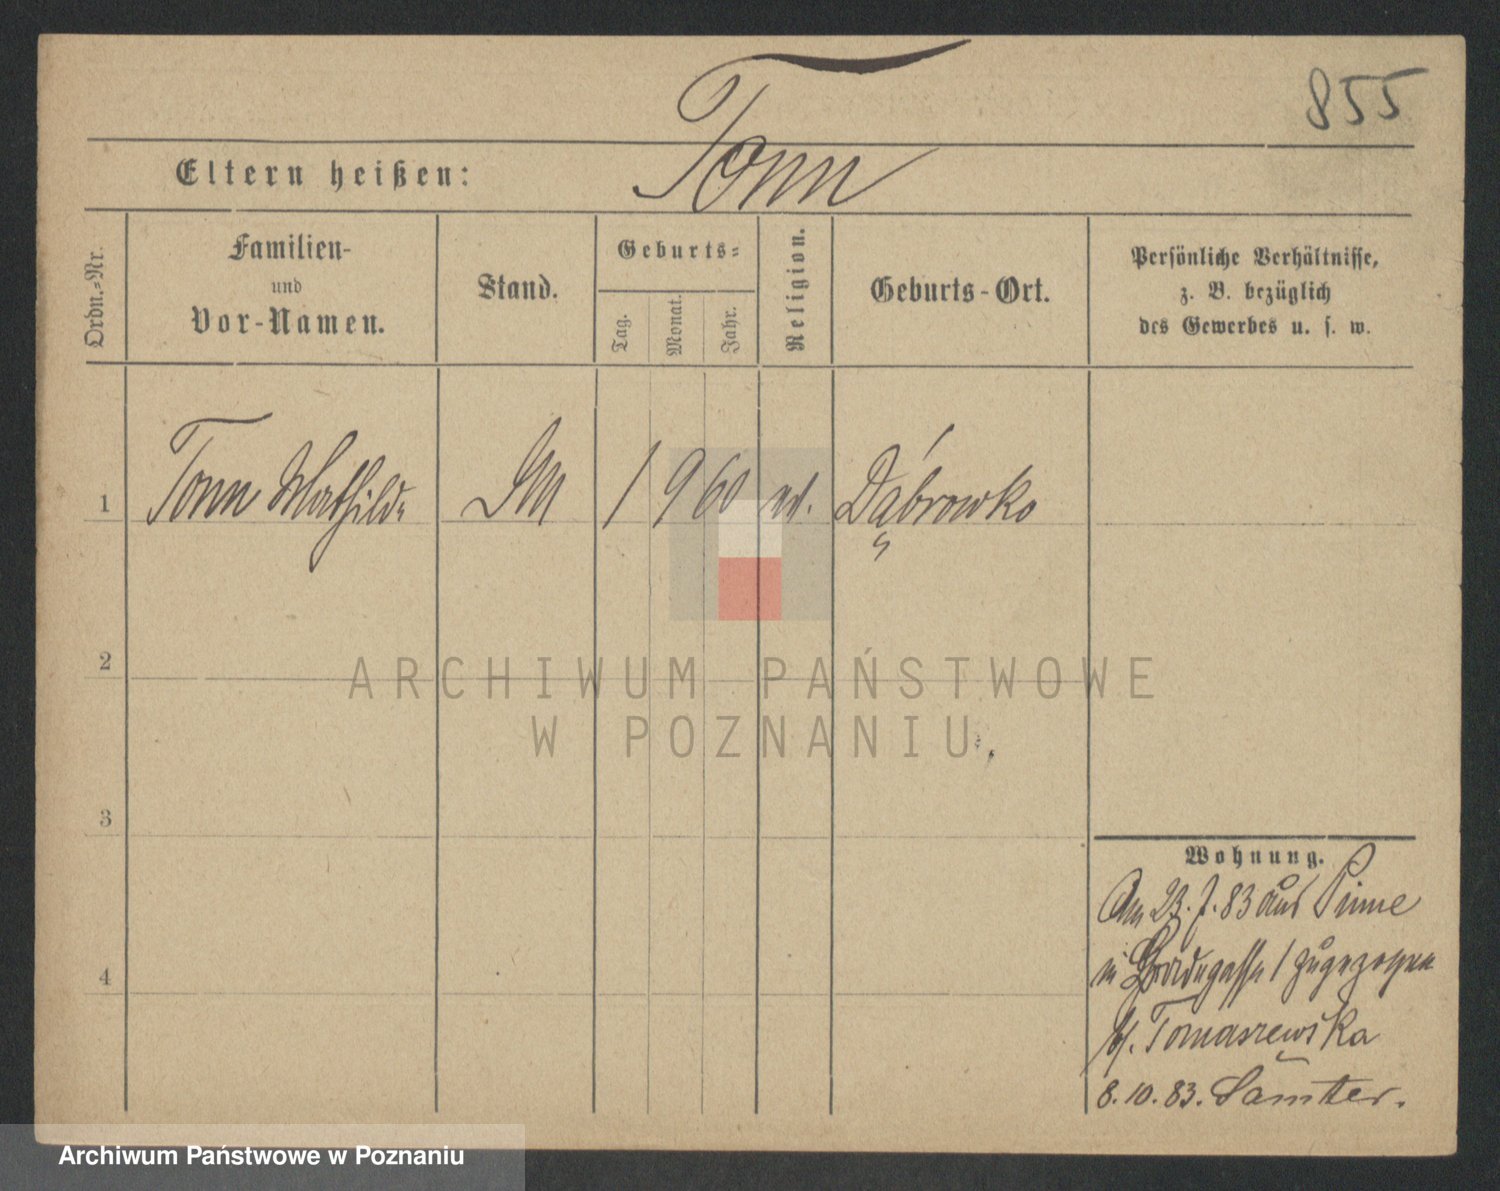 855
Tonn
Eltern heißen:
Ordn.-Nr.
Familien-
und
Vor-Namen.
Stand.
Geburts-
Tag.
Monat.
Jahr.
Religion.
Geburts-Ort.
Persönliche Verhältnisse,
z. B. bezüglich
des Gewerbes u. s. w.
1 Tonn Mathilde 1 9 60 Dąbrowko
2
ARCHIWUM PAŃSTWOWE
W POZNANIU
3
Wohnung.
Am 23. 7. 83 aus Pinne
in 1 zugezogen
4
b/. Tomaszewska
8. 10. 83. Samter.
Archiwum Państwowe w Poznaniu